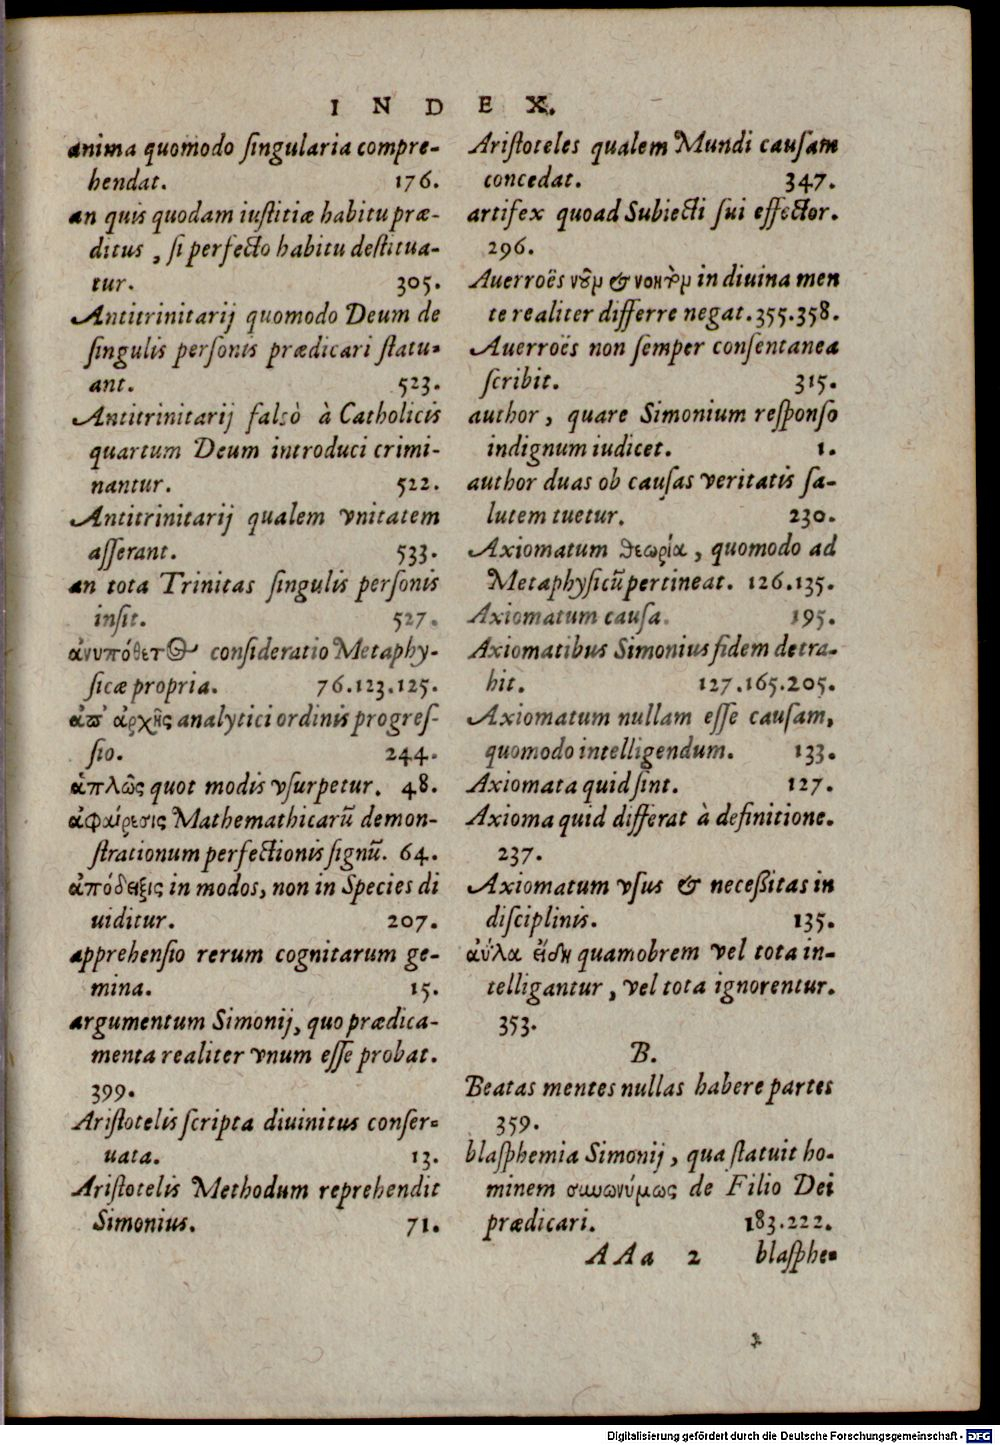 INDEX.
anima quomodo ſingularia compre-
hendat. 176.
an quis quodam iuſtitiæ habitu præ-
ditus, ſi perfecto habitu deſtitua-
tur. 305.
Antitrinitarij quomodo Deum de
ſingulis perſonis prædicari ſtatu-
ant. 523.
Antitrinitarij falsò à Catholicis
quartum Deum introduci crimi-
nantur. 522.
Antitrinitarij qualem vnitatem
aſſerant. 533.
an tota Trinitas ſingulis perſonis
inſit. 527.
ἀνυπόθετος conſideratio Metaphy-
ſicæ propria. 76.123.125.
ἀπ' ἀρχῆς analytici ordinis progreſ-
ſio. 244.
ἁπλῶς quot modis vſurpetur. 48.
ἀφαίρεσις Mathemathicarũ demon-
ſtrationum perfectionis ſignũ. 64.
ἀπόδειξις in modos, non in Species di
uiditur. 207.
apprehenſio rerum cognitarum ge-
mina. 15.
argumentum Simonij, quo prædica-
menta realiter vnum eſſe probat.
399.
Ariſtotelis ſcripta diuinitus conſer-
uata. 13.
Ariſtotelis Methodum reprehendit
Simonius. 71.
Ariſtoteles qualem Mundi cauſam
concedat. 347.
artifex quoad Subiecti ſui effector.
296.
Auerroës νοῦν & νοητὸν in diuina men
te realiter differre negat. 355.358.
Auerroës non ſemper conſentanea
ſcribit. 315.
author, quare Simonium reſponſo
indignum iudicet. 1.
author duas ob cauſas veritatis ſa-
lutem tuetur. 230.
Axiomatum θεωρία, quomodo ad
Metaphyſicũ pertineat. 126.135.
Axiomatum cauſa. 195.
Axiomatibus Simonius fidem detra-
hit. 127.165.205.
Axiomatum nullam eſſe cauſam,
quomodo intelligendum. 133.
Axiomata quid ſint. 127.
Axioma quid differat à definitione.
237.
Axiomatum vſus & neceßitas in
diſciplinis. 135.
ἀΰλα εἴδη quamobrem vel tota in-
telligantur, vel tota ignorentur.
353.
B.
Beatas mentes nullas habere partes
359.
blaſphemia Simonij, qua ſtatuit ho-
minem συνωνύμως de Filio Dei
prædicari. 183.222.
AAa 2 blaſphe-
Digitalisierung gefördert durch die Deutsche Forschungsgemeinschaft - DFG